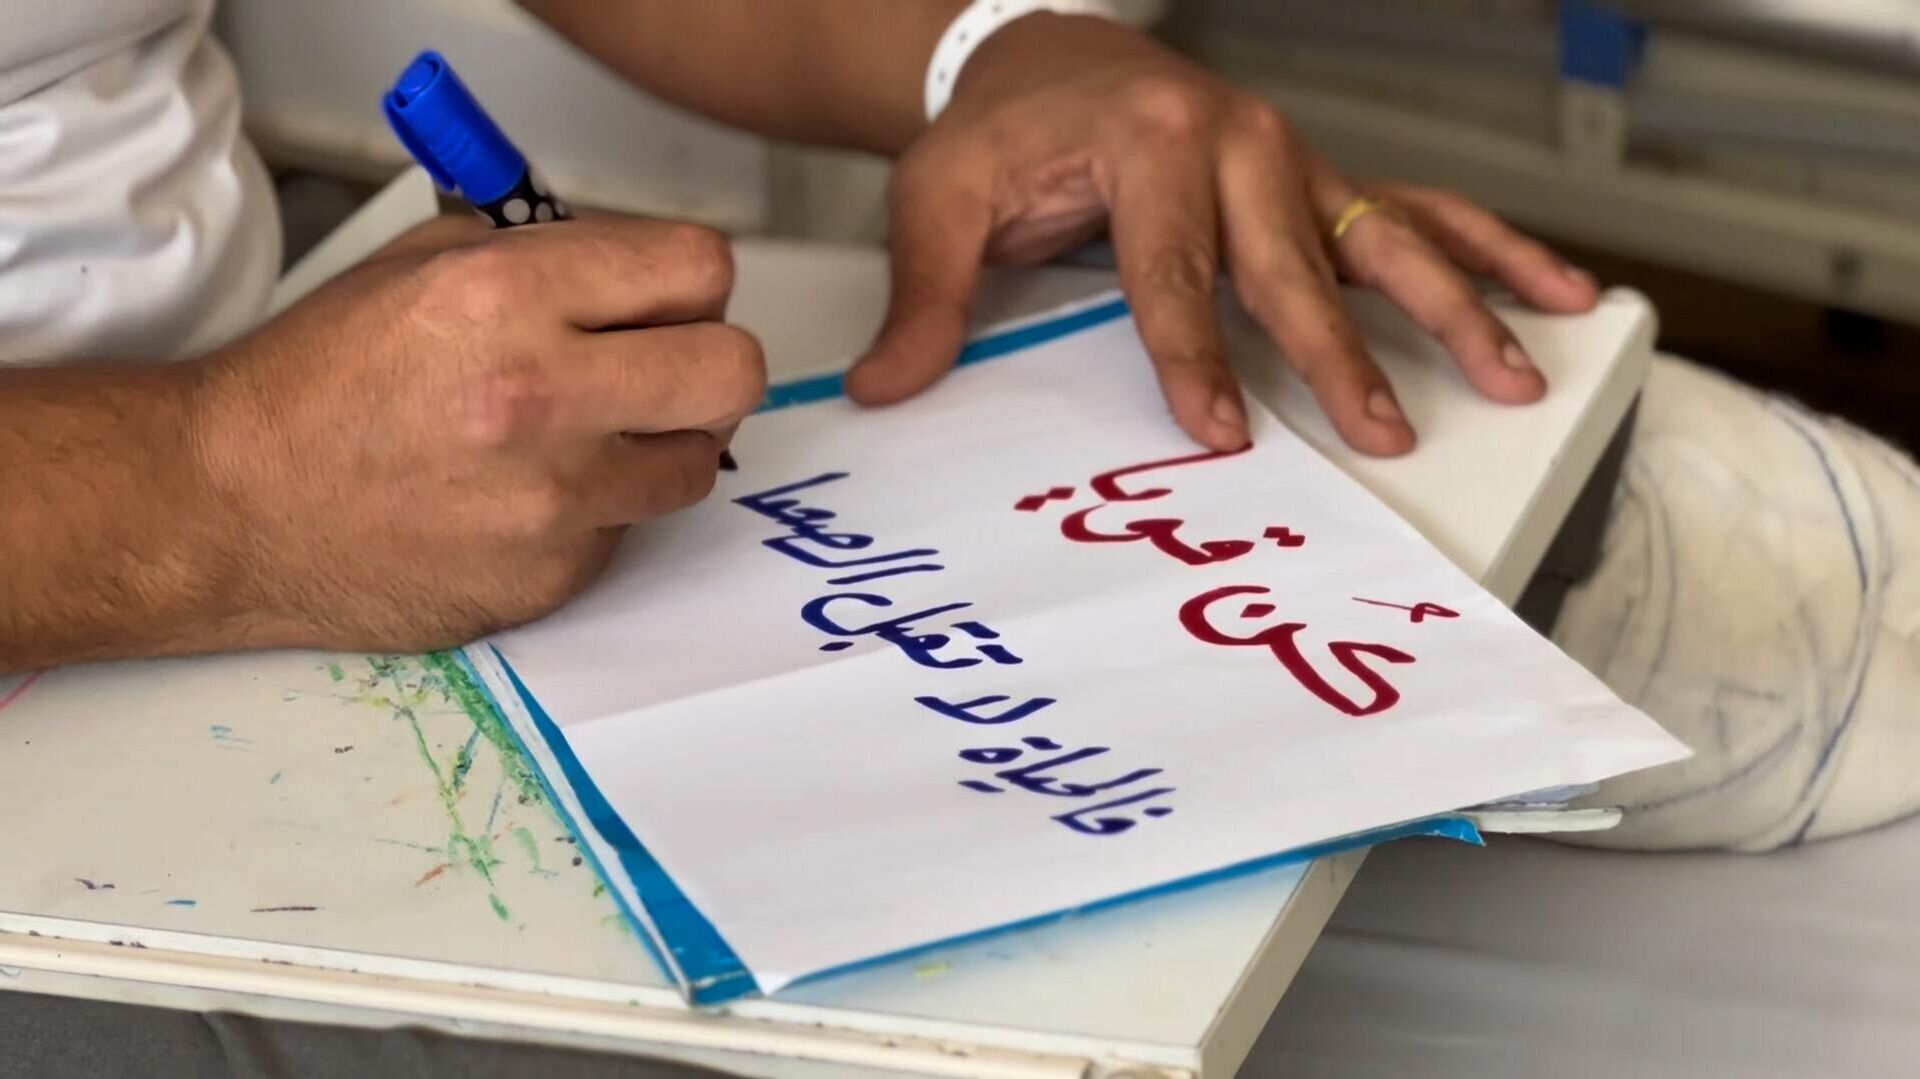 كُن قويا
فالحياة لا تقبل الضعفا